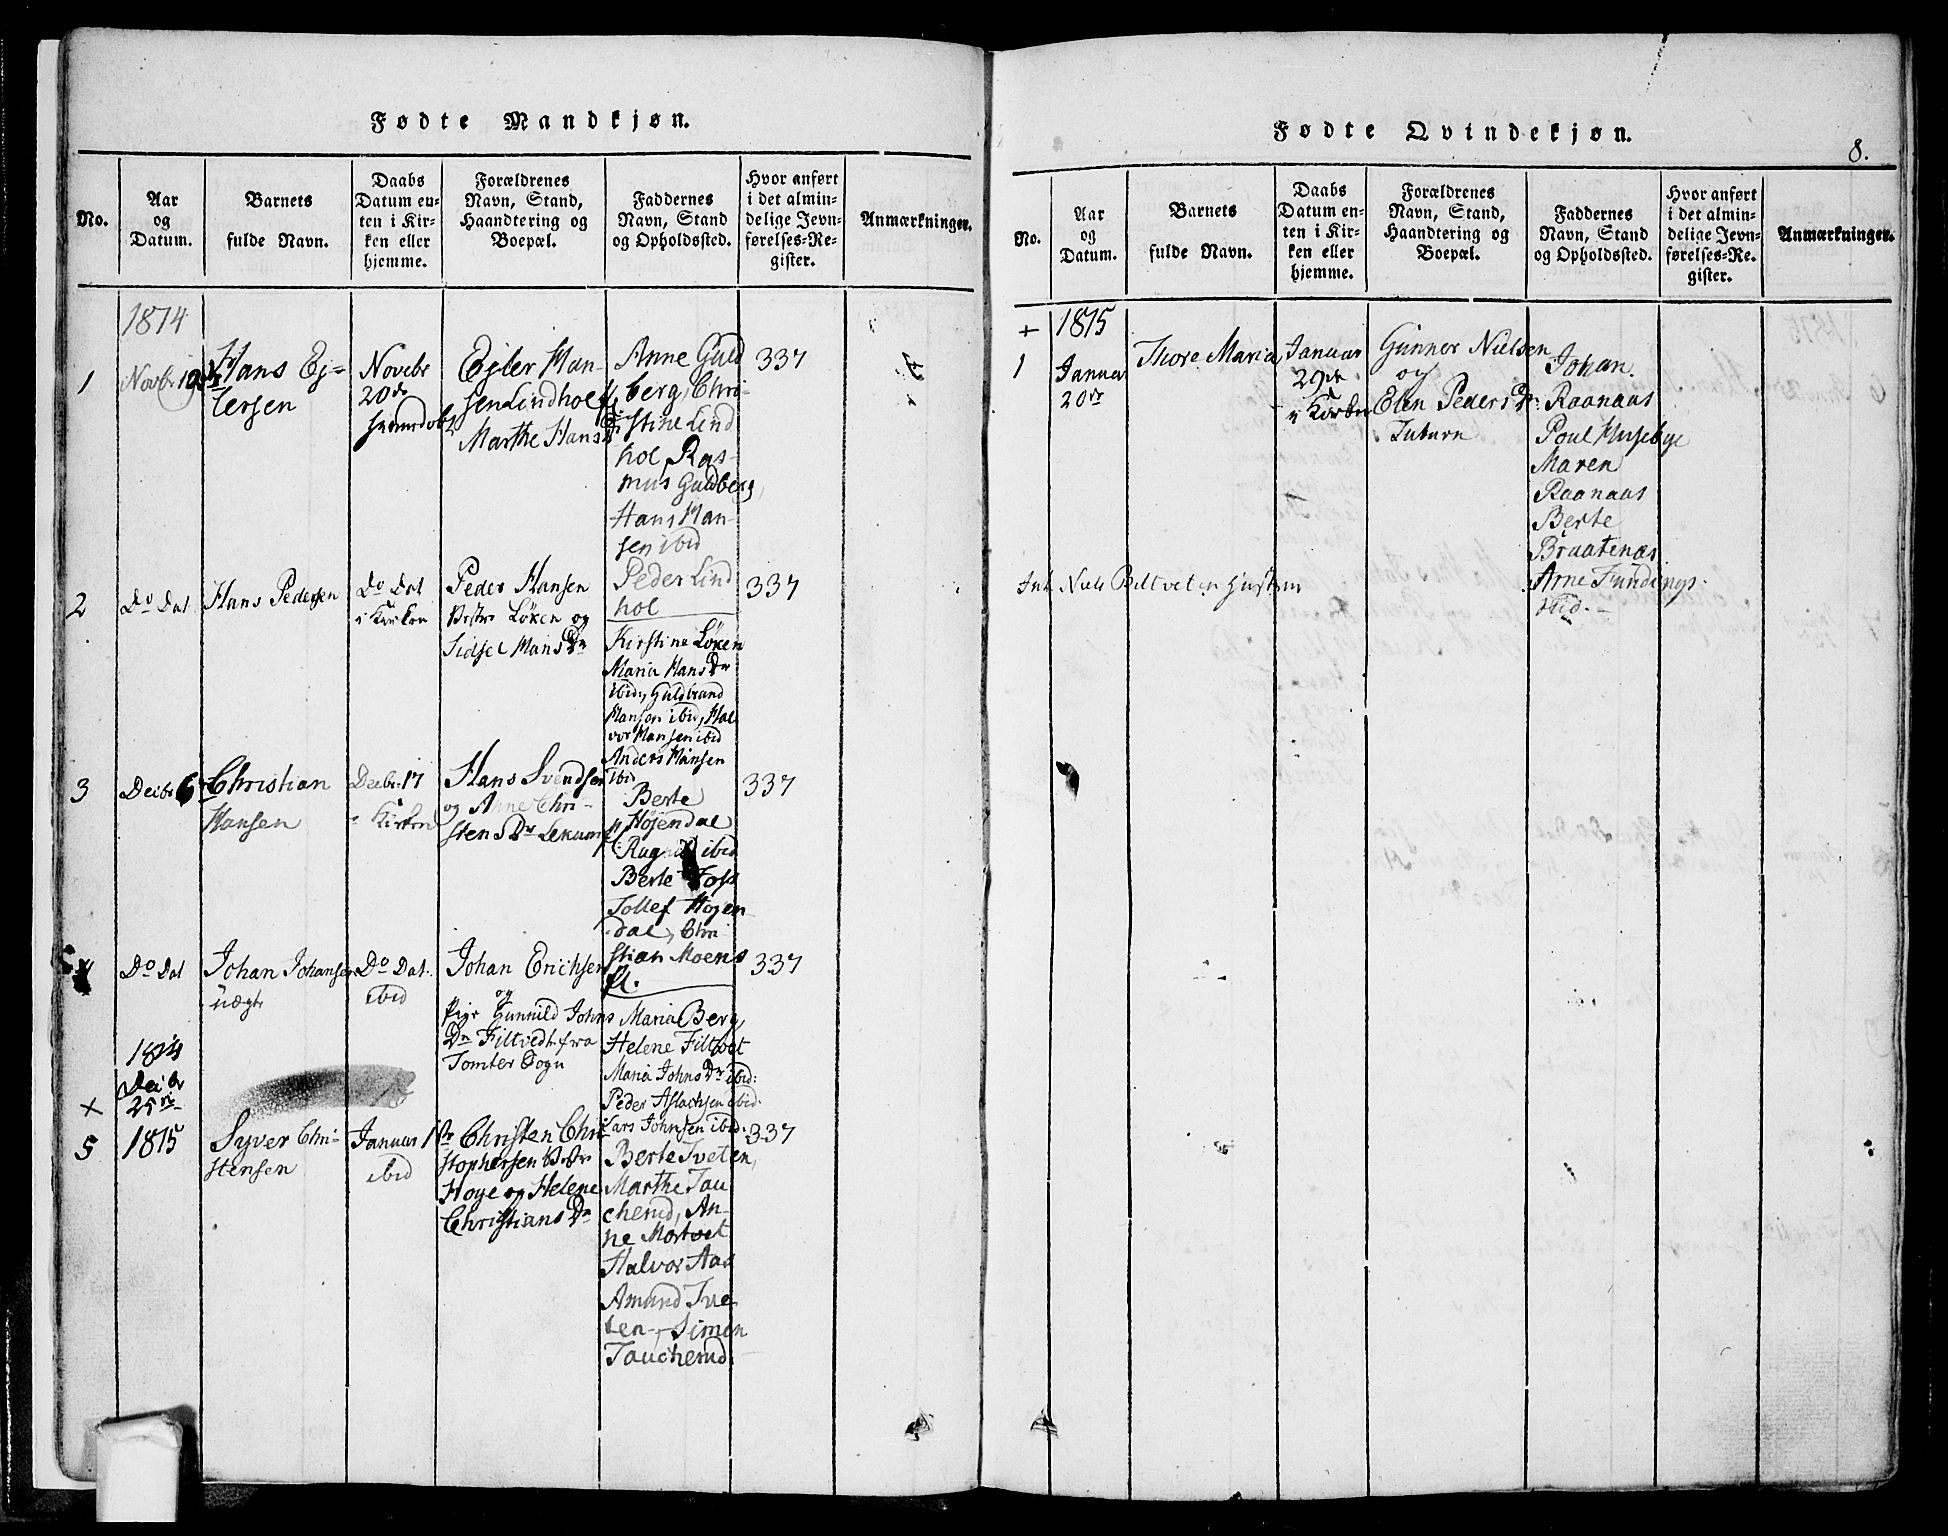 Fødte Mandkjøn.
No.
Aar
og
Datum.
Barnets
fulde Navn.
Daabs
Datum en-
ten i Kir-
ken eller
hjemme.
Forældrenes
Navn, Stand,
Haandtering og
Boepæl.
Faddernes
Navn, Stand
og Opholdssted.
Hvor anført
i det almin-
delige Jevn-
førelses-Re-
gister.
Anmærkninger.
1814
1
Novbr 19
Hans Ej=
lersen
Novbr
20de
Ejler Han-
sen Lindhoel
Marthe Hans
Anne Guld
berg, Chri-
stine Lind
hol, Ras-
mus Guldberg,
Hans Han-
sen ibid
Peder Lind
hol
337
2
Do Dat
Hans Pedersen
Do Dat
i Kirken
Peder Hansen
Løken og
Sidsel Hans Dr
Kirstine Løken
Maria Hans Dr
ibid, Guldbrand
Hansen ibid, Hal
vor Hansen ibid
Anders Hansen
ibid
337
3
Decbr 6
Christian
Hansen
Decbr 17
i Kirken
Hans Svendsen
og Anne Chri-
stens Dr Lekum
Berte
Højendal
ibid
Berte Foss
Tollef Højen
dal, Chri
stian Moens
337
4
Do Dat
Johan Johansen
uægte
Do Dat.
ibid
Johan Erichsen
og
Pige Gunnild Johns
Dr Filtvedt fra
Tomter Sogn
Maria Berg
Helene Filtvet
Maria Johns Dr ibid:
Peder Aslachsen ibid.
Lars Johnsen ibid.
337
1814
Decbr
25
+
5
1815
Syver Chri-
stensen
Januar 1
ibid
Christen Chri
stophersen
Hoye og Helene
Christians Dr
Berte Tveten,
Marthe Tau
cherud, An-
ne Mortvet
Halvor Aas
Amund Tve-
ten, Simen
Taucherud.
337
Fødte Qvindekjøn.
8.
No.
Aar
og
Datum.
Barnets
fulde Navn.
Daabs
Datum en-
ten i Kir-
ken eller
hjemme.
Forældrenes
Navn, Stand,
Haandtering og
Boepæl.
Faddernes
Navn, Stand
og Opholdssted.
Hvor anført
i det almin-
delige Jevn-
førelses-Re-
gister.
Anmærkninger.
+
1815
1
Januar
20
Thore Maria
Januar
29
i Kirken
Gunner Nielsen
og
Elen Peders Dr
Johan
Raanaas
Poul Husebye
Maren
Raanaas
Berte
Braatenæs
Arne Fundings
Int. Niels